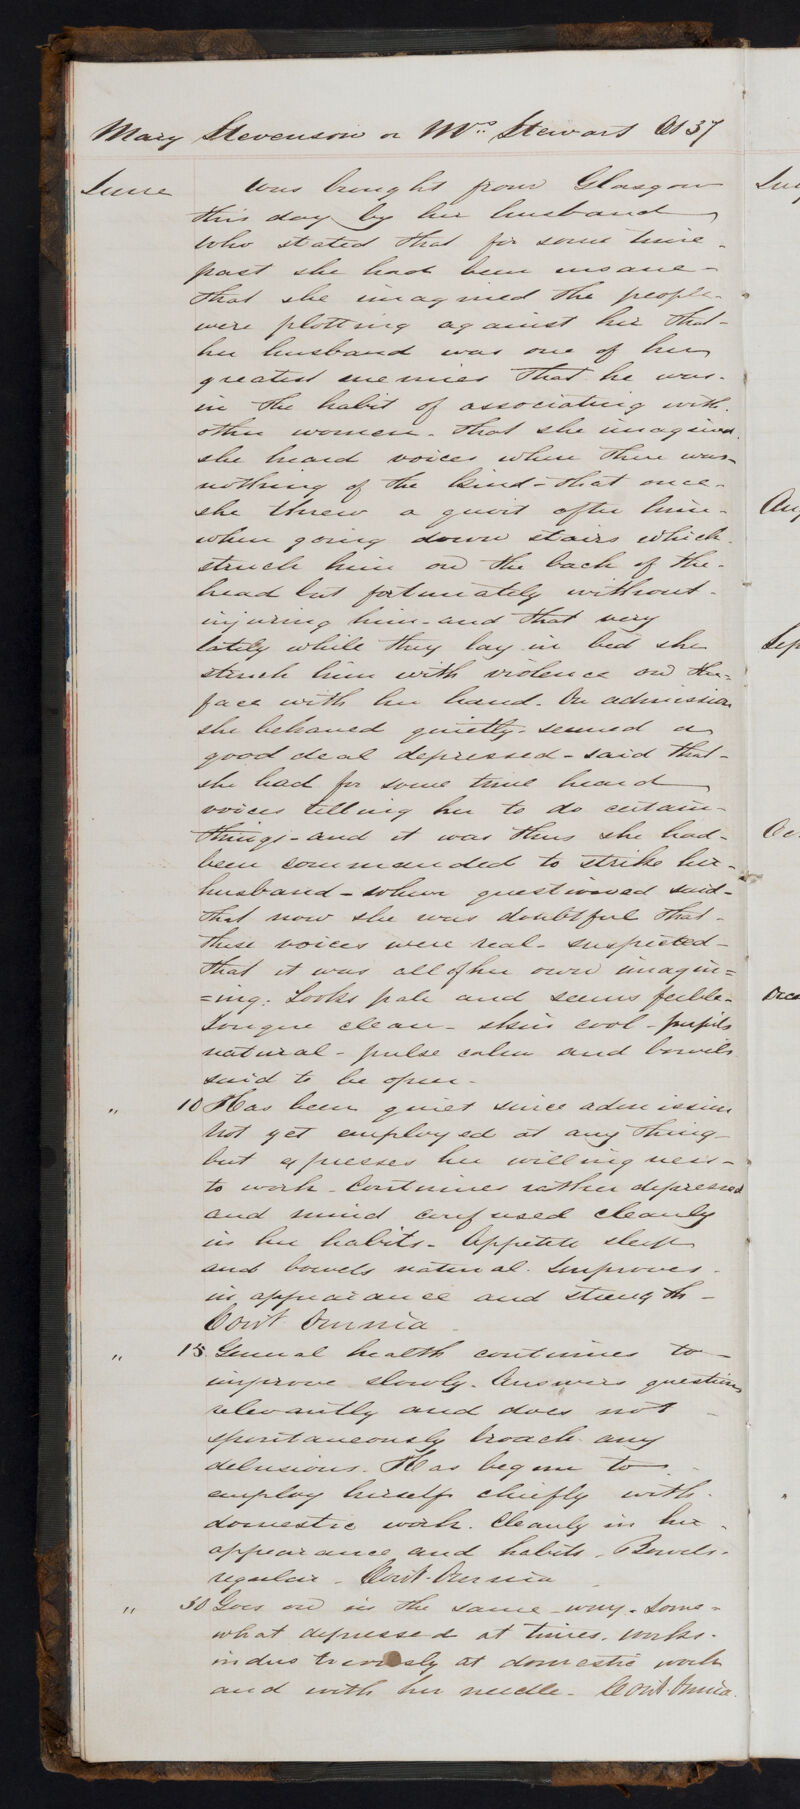 Mary Stevenson or Mrs Stewart Æt 37
June Was brought from Glasgow
this day by her husband
who stated that for some time
past she had been insane -
that she imagined the people
were plotting against her that
her husband was one of her
greatest enemies that he was
in the habit of associating with
other women - that she imagined
she heard voices when there was
nothing of the kind - that once
she threw a after him
when going down stairs which
struck him on the back of the
head but fortunately without
injuring him - and that very
lately while they lay in bed she
struck him with violence on the
face with her hand. On admission
she behaved quietly - seemed a
good deal depressed - said that
she had for some time heard
voices telling her to do certain
things - and it was thus she had
been commanded to strike her
husband - when questioned said
that now she was doubtful that
these voices were real - suspected
that it was all of her own imagin=
=ing. Looks pale and seems feeble -
Tongue clean - skin cool - pupils
natural - pulse calm and bowels
said to be open -
" 10 Has been quiet since admission
Not yet employed at any thing
but expresses her willingness
to work - Continues rather depressed
and mind confused cleanly
in her habits - Appetite sleep
and bowels natural. Improves
in appearance and strength -
Cont Omnia
" 15 General health continues to
improve slowly - Answers questions
relevantly and does not
spontaneously broach any
delusions. Has begun to
employ herself chiefly with
domestic work. Cleanly in her
appearance and habits. Bowels
regular. Cont. Omnia
" 30 Goes on in the same way. Some=
what depressed at times. works
industriously at domestic work
and with her needle - Cont. Omnia.
July
Aug
Sep
Oc
Dec